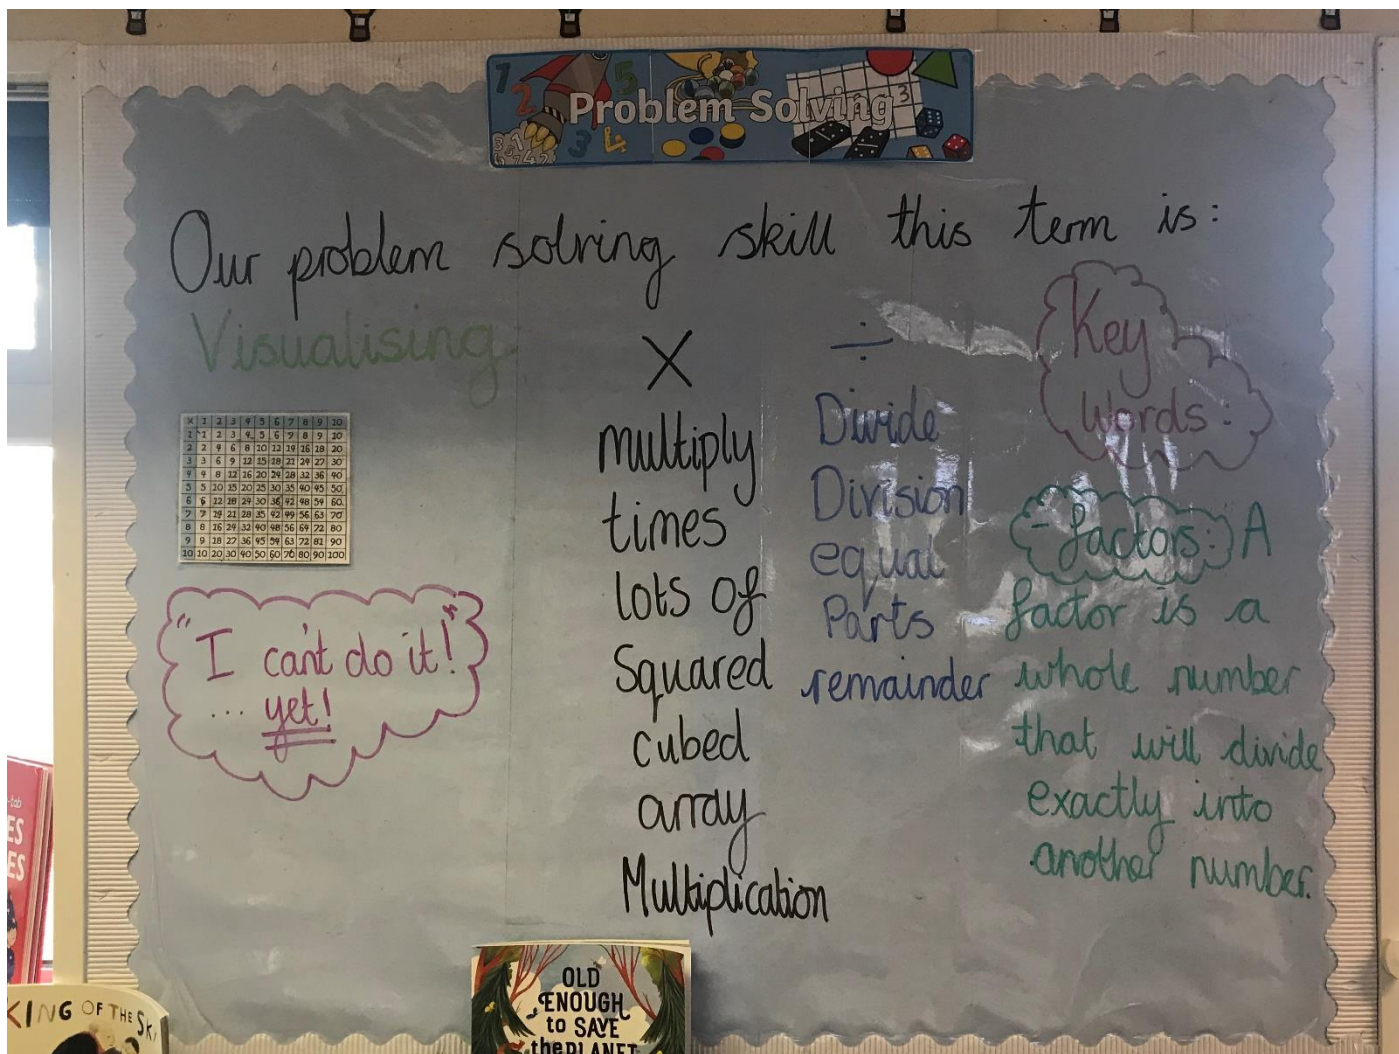 Problem Solving
Our problem solving skill this term is:
Visualising
× 1 2 3 4 5 6 7 8 9 10
1 1 2 3 4 5 6 7 8 9 10
2 2 4 6 8 10 12 14 16 18 20
3 3 6 9 12 15 18 21 24 27 30
4 4 8 12 16 20 24 28 32 36 40
5 5 10 15 20 25 30 35 40 45 50
6 6 12 18 24 30 36 42 48 54 60
7 7 14 21 28 35 42 49 56 63 70
8 8 16 24 32 40 48 56 64 72 80
9 9 18 27 36 45 54 63 72 81 90
10 10 20 30 40 50 60 70 80 90 100
"I can't do it!"
... yet!
×
multiply
times
lots of
Squared
cubed
array
Multiplication
÷
Divide
Division
equal
Parts
remainder
Key
Words:
- factors: A
factor is a
whole number
that will divide
exactly into
another number.
KING OF THE SKY
OLD
ENOUGH
to SAVE
the PLANET